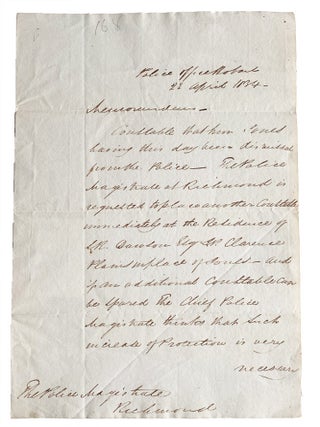 Police Office Hobart
22 April 1834 -
Memorandum -
Constable Jones
having this day been dismissed
from the Police - The Police
Magistrate at Richmond is
requested to place another Constable
immediately at the Residence of
Dawson Esq Clarence
Plains in place of Jones - and
if an additional Constable can
be spared The Chief Police
Magistrate thinks that such
increase of Protection is very
necessary
The Police Magistrate
Richmond